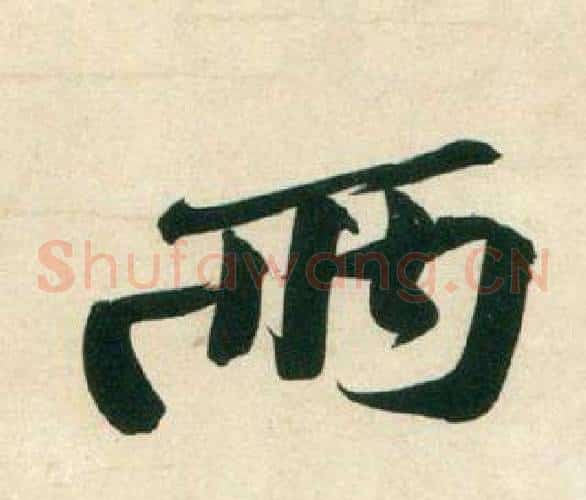 兩
Shufawang.CN